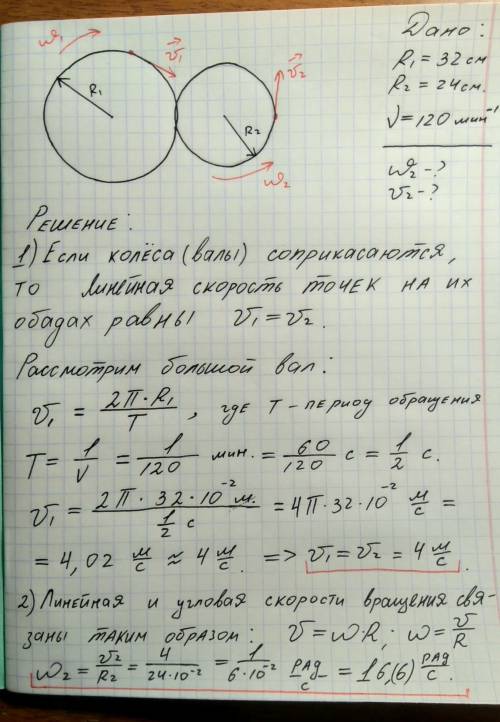 Дано:
R₁ = 32 см
R₂ = 24 см.
ν = 120 мин⁻¹
ω₂ - ?
v₂ - ?
ω₁
v⃗₁
v⃗₂
R₁
R₂
ω₂
Решение:
1) Если колёса (валы) соприкасаются,
то линейная скорость точек на их
ободах равны v₁ = v₂.
Рассмотрим большой вал:
v₁ = 2π·R₁/T, где T - период обращения
T = 1/ν = 1/120 мин. = 60/120 с = 1/2 с.
v₁ = 2π · 32·10⁻² м. / 1/2 с = 4π·32·10⁻² м/с =
= 4,02 м/с ≈ 4 м/с. => v₁ = v₂ = 4 м/с.
2) Линейная и угловая скорости вращения свя-
заны таким образом: v = ω·R; ω = v/R
ω₂ = v₂/R₂ = 4/24·10⁻² = 1/6·10⁻² рад/с = 16,(6) рад/с.